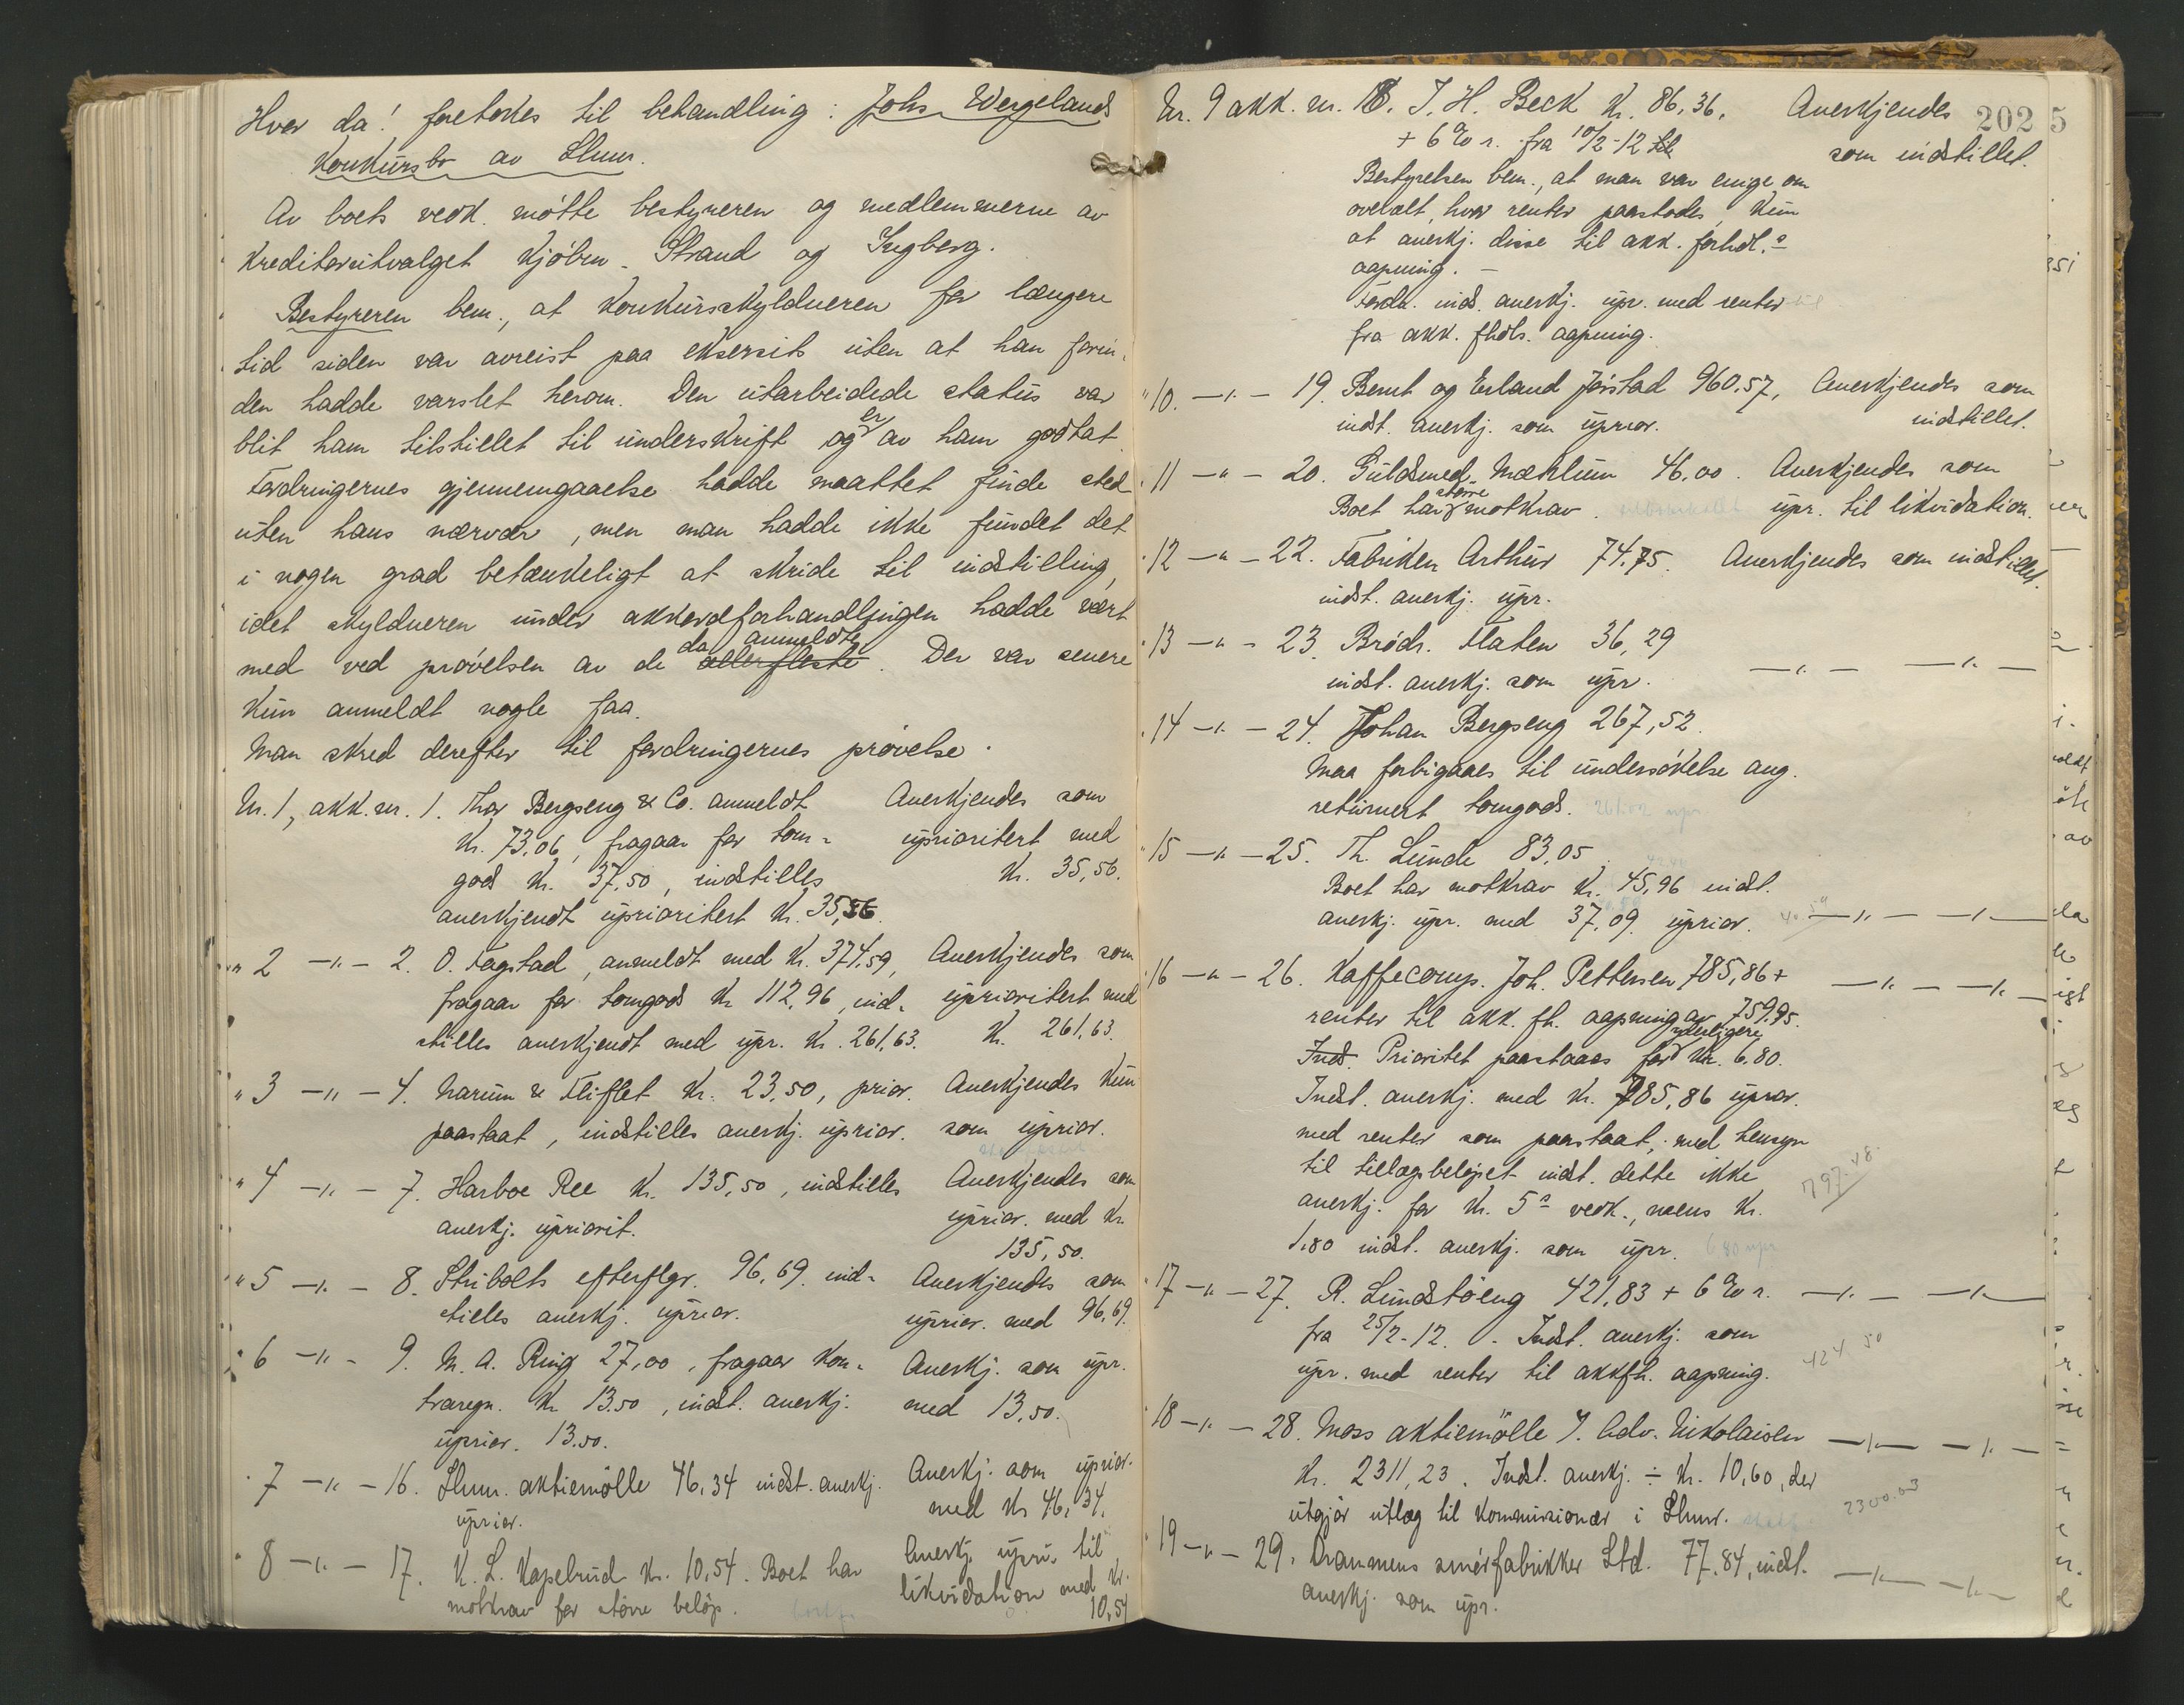 Hvor da! foretokes til behandling: Johs. Wergelands
Konkursbo av Lhmr.
Av boets vedk. møtte bestyreren og medlemmerne av
kreditorutvalget Kjøbm. Strand og Engberg.
Bestyreren bem., at konkursskyldneren for længere
tid siden var avreist paa eksersits uten at han forin-
den hadde varslet herom. Den utarbeidede status var
blit ham tilstillet til underskrift og er av ham godtat.
Fordringernes gjennemgaaelse hadde maattet finde sted
uten hans nærvær, men man hadde ikke fundet det
i nogen grad betænkeligt at skride til indstilling,
idet skyldneren under akkordforhandlingen hadde vært
med ved prøvelsen av de da anmeldte allerfleste. Der var senere
kun anmeldt nogle faa.
Man skred derefter til fordringernes prøvelse.
Nr. 1, akk. nr. 1. Thor Bergseng & Co. anmeldt Anerkjendes som
Kr. 73,06, fragaar for tom- uprioritert med
gods Kr. 37,50, indstilles Kr. 35,56.
anerkjendt uprioritert Kr. 35,56.
" 2 —"— 2. O. Fagstad, anmeldt med Kr. 374,59, Anerkjendes som
fragaar for tomgods Kr 112,96, ind- uprioritert med
stilles anerkjendt med upr. Kr. 261,63. Kr. 261,63.
" 3 —"— 4. Narum & Fliflet Kr. 23,50, prior. Anerkjendes kun
paastaat, indstilles anerkj. uprior. som uprior.
" 4 —"— 7. Harboe Ree Kr. 135,50, indstilles Anerkjendes som
anerkj. upriorit. uprior. med Kr.
135,50.
" 5 —"— 8. Stribolts efterflgr. 96,69 ind- Anerkjendes som
stilles anerkj. uprior. uprior. med 96,69.
" 6 —"— 9. M. A. Ring 27,00, fragaar kon- Anerkj. som upr.
traregn. Kr 13.50, indst. anerkj. med 13,50.
uprior. 13.50.
" 7 —"— 16. Lhmr. aktiemølle 46,34 indst. anerkj. Anerkj. som uprior.
uprior. med Kr 46,34.
" 8 —"— 17. K. L. Kapelrud Kr. 10,54. Boet har Anerkj. upri. til
motkrav for større beløp. likvidation med Kr.
10,54
202 5
Nr. 9 akk. nr. 18. J. H. Beck Kr. 86,36. Anerkjendes
+ 6 % r. fra 10/2-12 til som indstillet.
Bestyrelsen bem., at man var enige om
overalt, hvor renter paastodes, kun
at anerkj. disse til akk. forhdl.s
aapning. —
Fordr. inds. anerkj. upr. med renter til
fra akk. fhdls. aapning.
" 10. —"— 19. Bernt og Erland Jørstad 960.57, Anerkjendes som
indst. anerkj. som uprior. indstillet.
" 11 —"— 20. Guldsmed Mæhlum 46,00. Anerkjendes som
Boet har større motkrav. upr. til likvidation.
" 12 —"— 22. Fabriken Arthur 74.75. Anerkjendes som indstillet.
indst. anerkj. upr.
" 13 —"— 23. Brødr. Flaten 36,29
indst. anerkj. som upr. —"— —"—
" 14 —"— 24. Johan Bergseng 267,52.
Maa forbigaaes til undersøkelse ang.
returnert tomgods.
" 15 —"— 25. Th. Lunde 83,05
Boet har motkrav Kr. 45,96 indst.
anerkj. upr. med 37,09 uprior. —"— —"—
" 16 —"— 26. Kaffecomp. Joh. Pettersen 785,86 + —"— —"—
renter til akk. fh. aapning av 759,95.
Inds. Prioritet paastaaes for yderligere Kr. 6.80.
Indst. anerkj. med Kr. 785,86 uprior.
med renter som paastaat; med hensyn
til tillægsbeløpet indst. dette ikke 797.48.
anerkj. for Kr. 5 vedk., mens Kr.
1.80 indst. anerkj. som upr. 680 upr
" 17 —"— 27. R. Lundstøeng 421,83 + 6 % r. —"— —"—
fra 25/2-12. Indst. anerkj. som
upr. med renter til akkfh. aapning. 424 50
" 18 —"— 28. Moss aktiemølle v. Adv. Nikolaisen —"— —"—
Kr. 2311,23. Indst. anerkj. ÷ Kr. 10,60, der
utgjør utlæg til kommissionær i Lhmr. 2300.63
" 19 —"— 29. Drammens smørfabrikker Ltd. 77.84, indst. —"— —"—
anerkj. som upr.